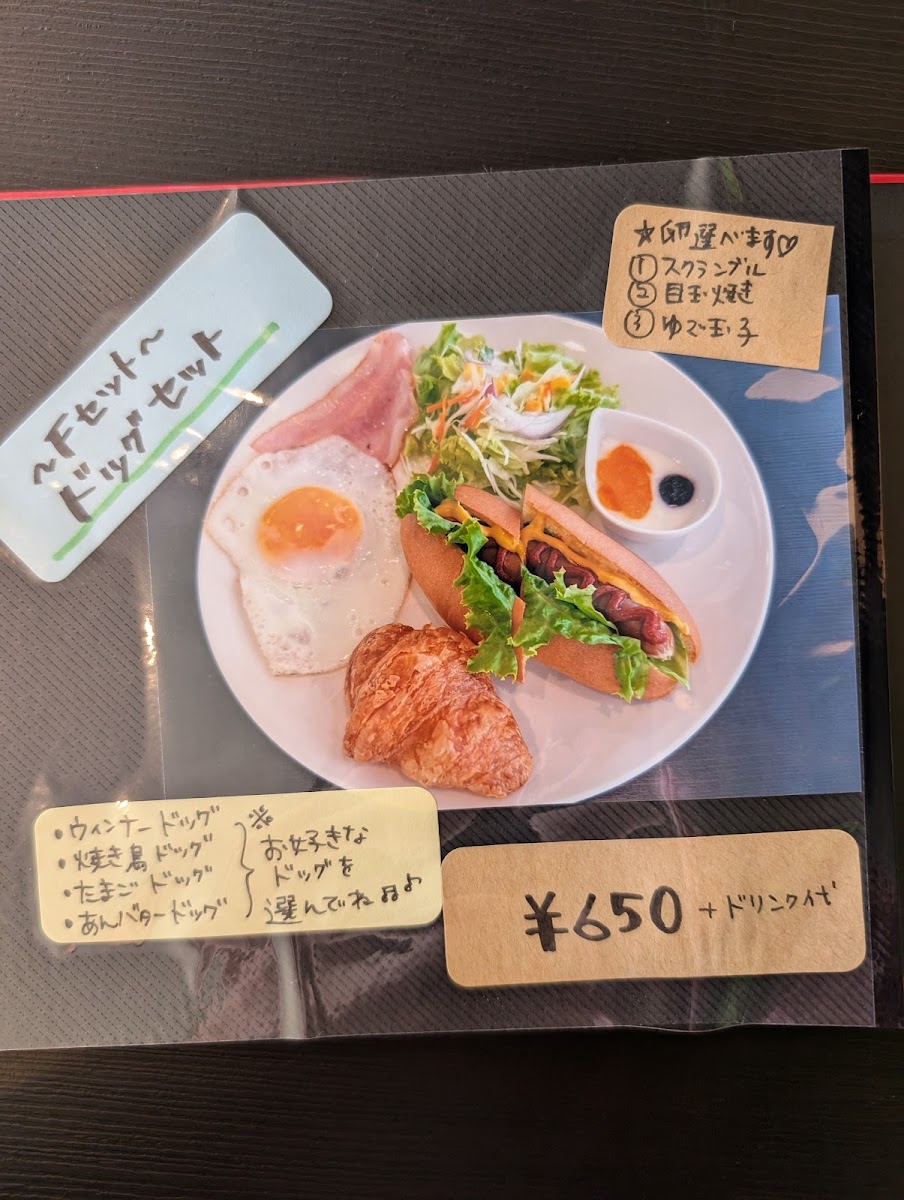 ~Fセット~
ドッグセット
☆卵選べます♡
①スクランブル
②目玉焼き
③ゆで玉子
・ウィンナードッグ
・焼き鳥ドッグ
・たまごドッグ
・あんバタードッグ
※
お好きな
ドッグを
選んでね♫♪
¥650+ドリンク代